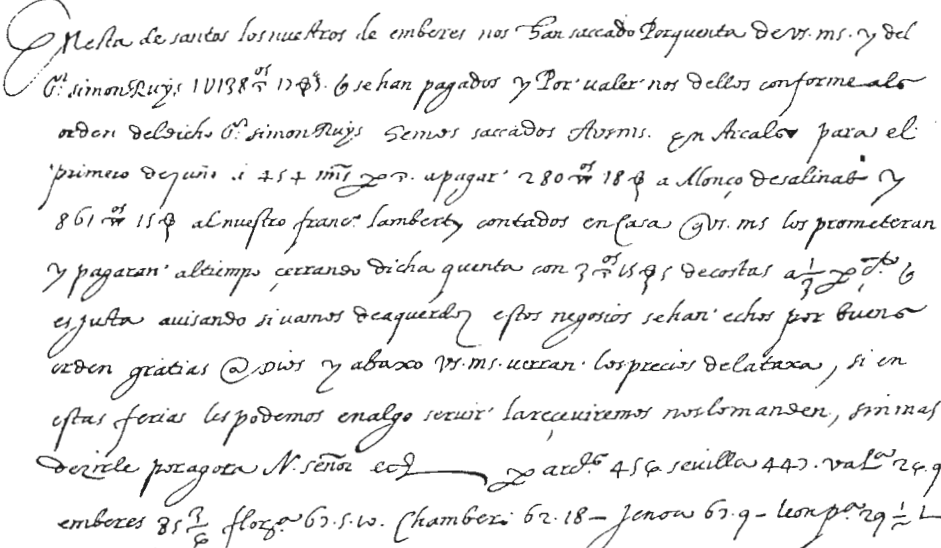 En esta de santos los nuestros de emberes nos han saccado Por quenta de vs. ms. y del
Gl. simon Ruys 1V138 17 9 3. q se han pagados y Por valer nos dellos conforme a la
orden del dicho Gl. simon Ruys hemos saccados A vs ms. En Arcalo para el
primero de juño i 454 mrs a pagar 280 18 a Alonço de salinas y
861 15 al nuestro franc.o lambert y contados en Casa q vs. ms los prometeran
y pagaran al tiempo cerrando dicha quenta con 3 15 5 de costas a 1/3 q
es justa avisando si vamos de aquerdo estos negosios se han echos por buena
orden gratias @ Dios y abaxo vs. ms. verran los precios de la taxa, si en
estas ferias les podemos en algo servir la reçeviremos nos lo manden, sin mas
dezirle por agora N. señor 454 sevilla 447. val.a 24.9
emberes 85 flor.a 67.5.w. Chamberi 62.18 – Jenova 67.9 – leon p.a 29 1/2 L